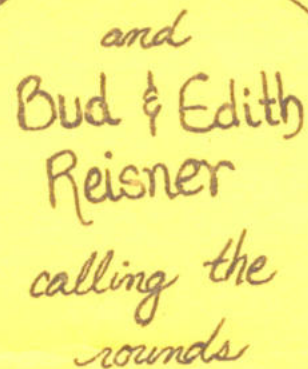 and
Bud & Edith
Reisner
calling the
rounds